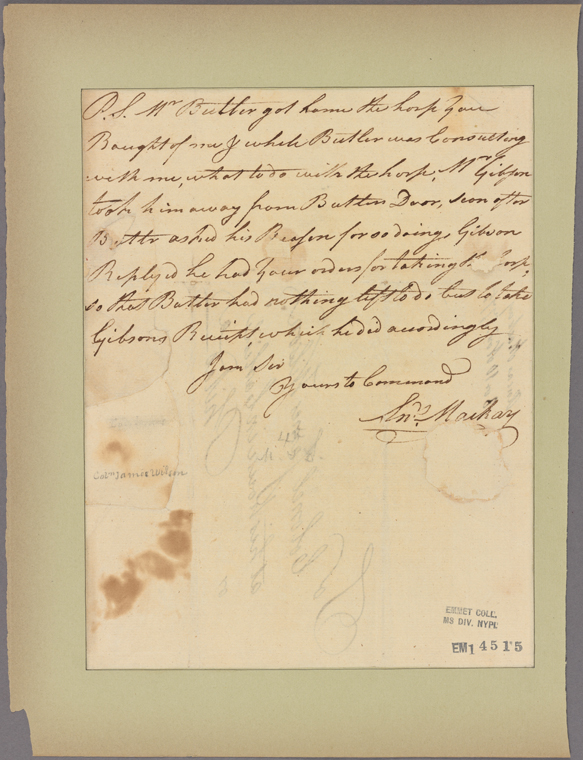 P.S. Mr Butler got home the horse you
Bought of me & while Butler was Consulting
with me, what to do with the horse, Mr Gibson
took him away from Butlers Door, soon after
Butlr asked his Reason for so doing, Gibson
Replyed he had your orders for taking the orse,
so that Butler had nothing left to do but to take
Gibsons Receipt which he did accordingly
I am Sir
Yours to Command
Mackay
Colo. James Wilson
EMMET COLL.
MS DIV. NYPL
EM1 4515